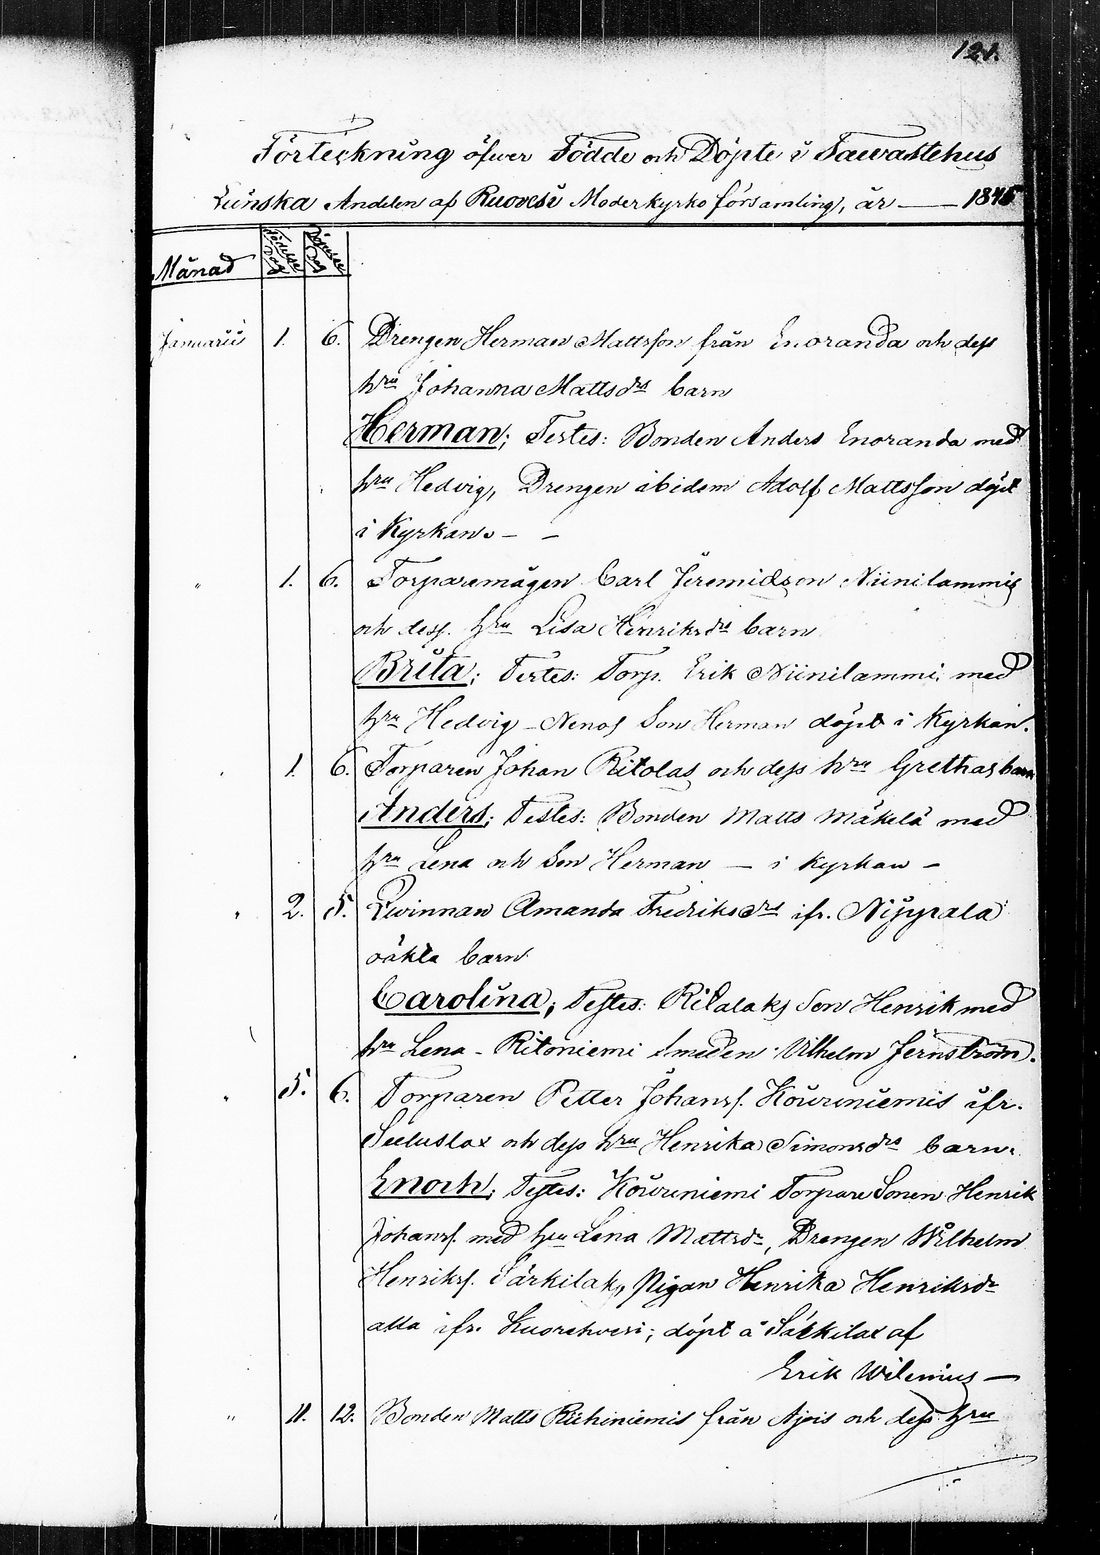 121.
Förteckning öfwer Födde och Döpte i Tawastehus
Länska Andelen af Ruovesi Moderkyrko församling, år — 1845
Månad Födelse Dag Döpelse Dag
Januarii 1. 6. Drengen Herman Mattsson från Enoranda och dess
hru Johanna Mattsdrs barn
Herman; Testes: Bonden Anders Enoranda med
hru Hedvig, Drengen ibidem Adolf Mattsson döpt
i Kyrkan. — —
" 1. 6. Torparemågen Carl Jeremidson Niinilammis
och dess. hru Lisa Henriksdrs barn
Brita; Testes: Torp. Erik Niinilammi med
hru Hedvig - Son Herman döpt i Kyrkan.
" 1. 6. Torparen Johan Ritolas och dess hru Grethas barn
Anders; Testes: Bonden Matts Mäkelä med
hru Lena och Son Herman — i Kyrkan —
" 2. 5. Qwinnan Amanda Fredriksdrs ifr. Nippala
oäkta barn
Carolina; Testes: Ritalaks Son Henrik med
hru Lena - Ritoniemi Smeden Vilhelm Jernström.
" 5. 6. Torparen Petter Johanss. Kouruniemis ifr.
och dess hru Henrika Simonsdrs barn.
Enoch; Testes: Kouruniemi Torpare Sonen Henrik
Johanss. med hru Lena Mattsdr, Drengen Wilhelm
Henrikss. Särkilaks, Pigan Henrika Henriksdr
alla ifr. Kuorehvesi; döpt å Särkilax af
Erik Wilenius —
" 11. 12. Bonden Matts Riihiniemis från Ajois och dess hru